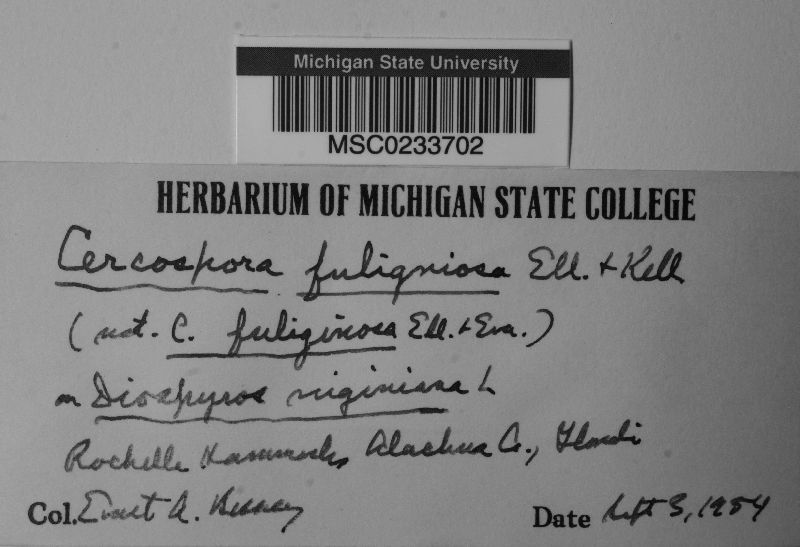 Michigan State University
MSC0233702
HERBARIUM OF MICHIGAN STATE COLLEGE
Cercospora fuligniosa Ell. & Kell
(not. C. fuliginosa Ell. & Eva.)
on Diospyros viginiana L
Rochelle Alachua Co.,
Col. Ernst A. Bessey
Date Sept 3, 1954